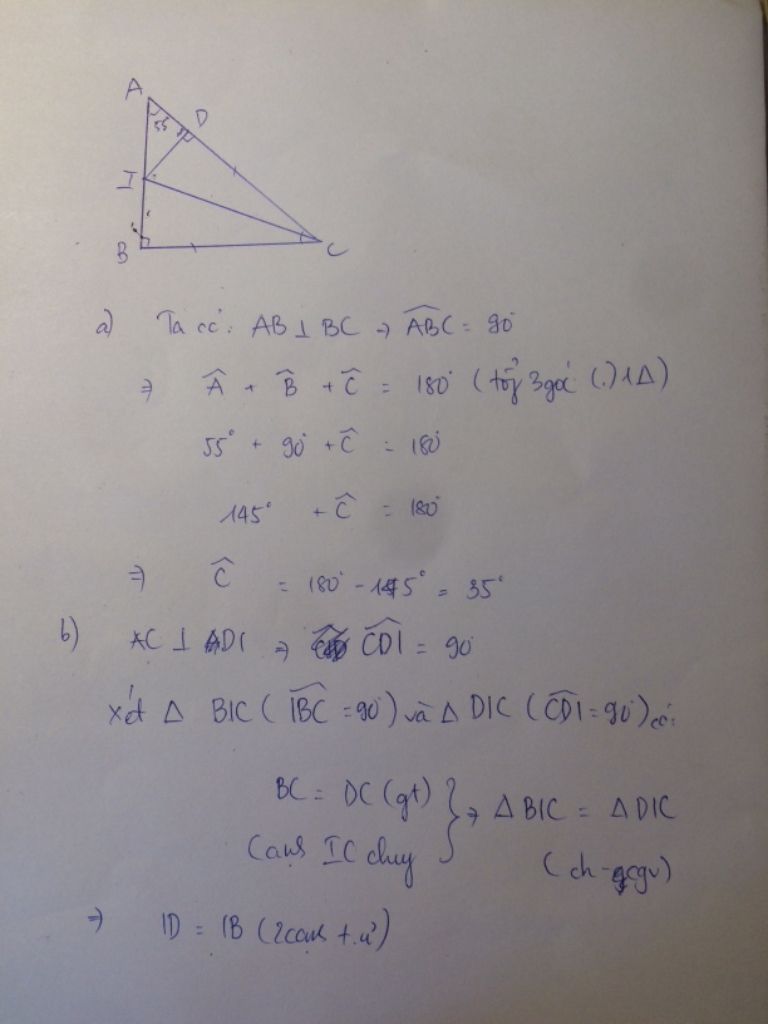 A
D
55
I
B
C
a) Ta có: AB ⊥ BC → ABC = 90°
⇒ Â + B̂ + Ĉ = 180° (tổg 3 góc (.) 1 Δ)
55° + 90° + Ĉ = 180°
145° + Ĉ = 180°
⇒ Ĉ = 180° - 145° = 35°
b) AC ⊥ DI ⇒ CDI = 90°
xét Δ BIC (IBC = 90°) và Δ DIC (CDI = 90°) có:
BC = DC (gt) } ⇒ Δ BIC = Δ DIC
Cạnh IC chug
(ch - cgv)
⇒ ID = IB (2 cạnh t.ư)